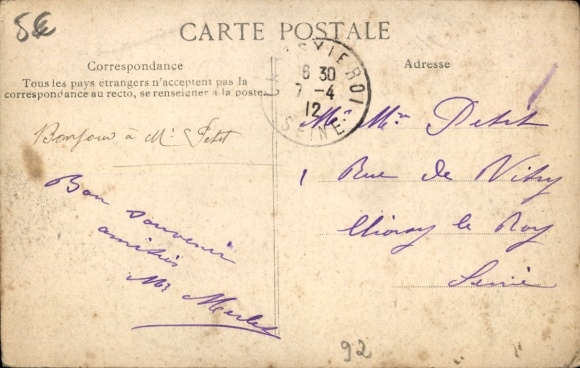 5€
CARTE POSTALE
Correspondance
Tous les pays étrangers n'acceptent pas la
correspondance au recto, se renseigner à la poste.
Bonjour à Mr Petit
Bon souvenir
amitiés
Mr
CHOISY LE ROI
6 30
7 - 4
12
SEINE
Adresse
Mr Petit
1 Rue de Vitry
Choisy le Roy
Seine
92